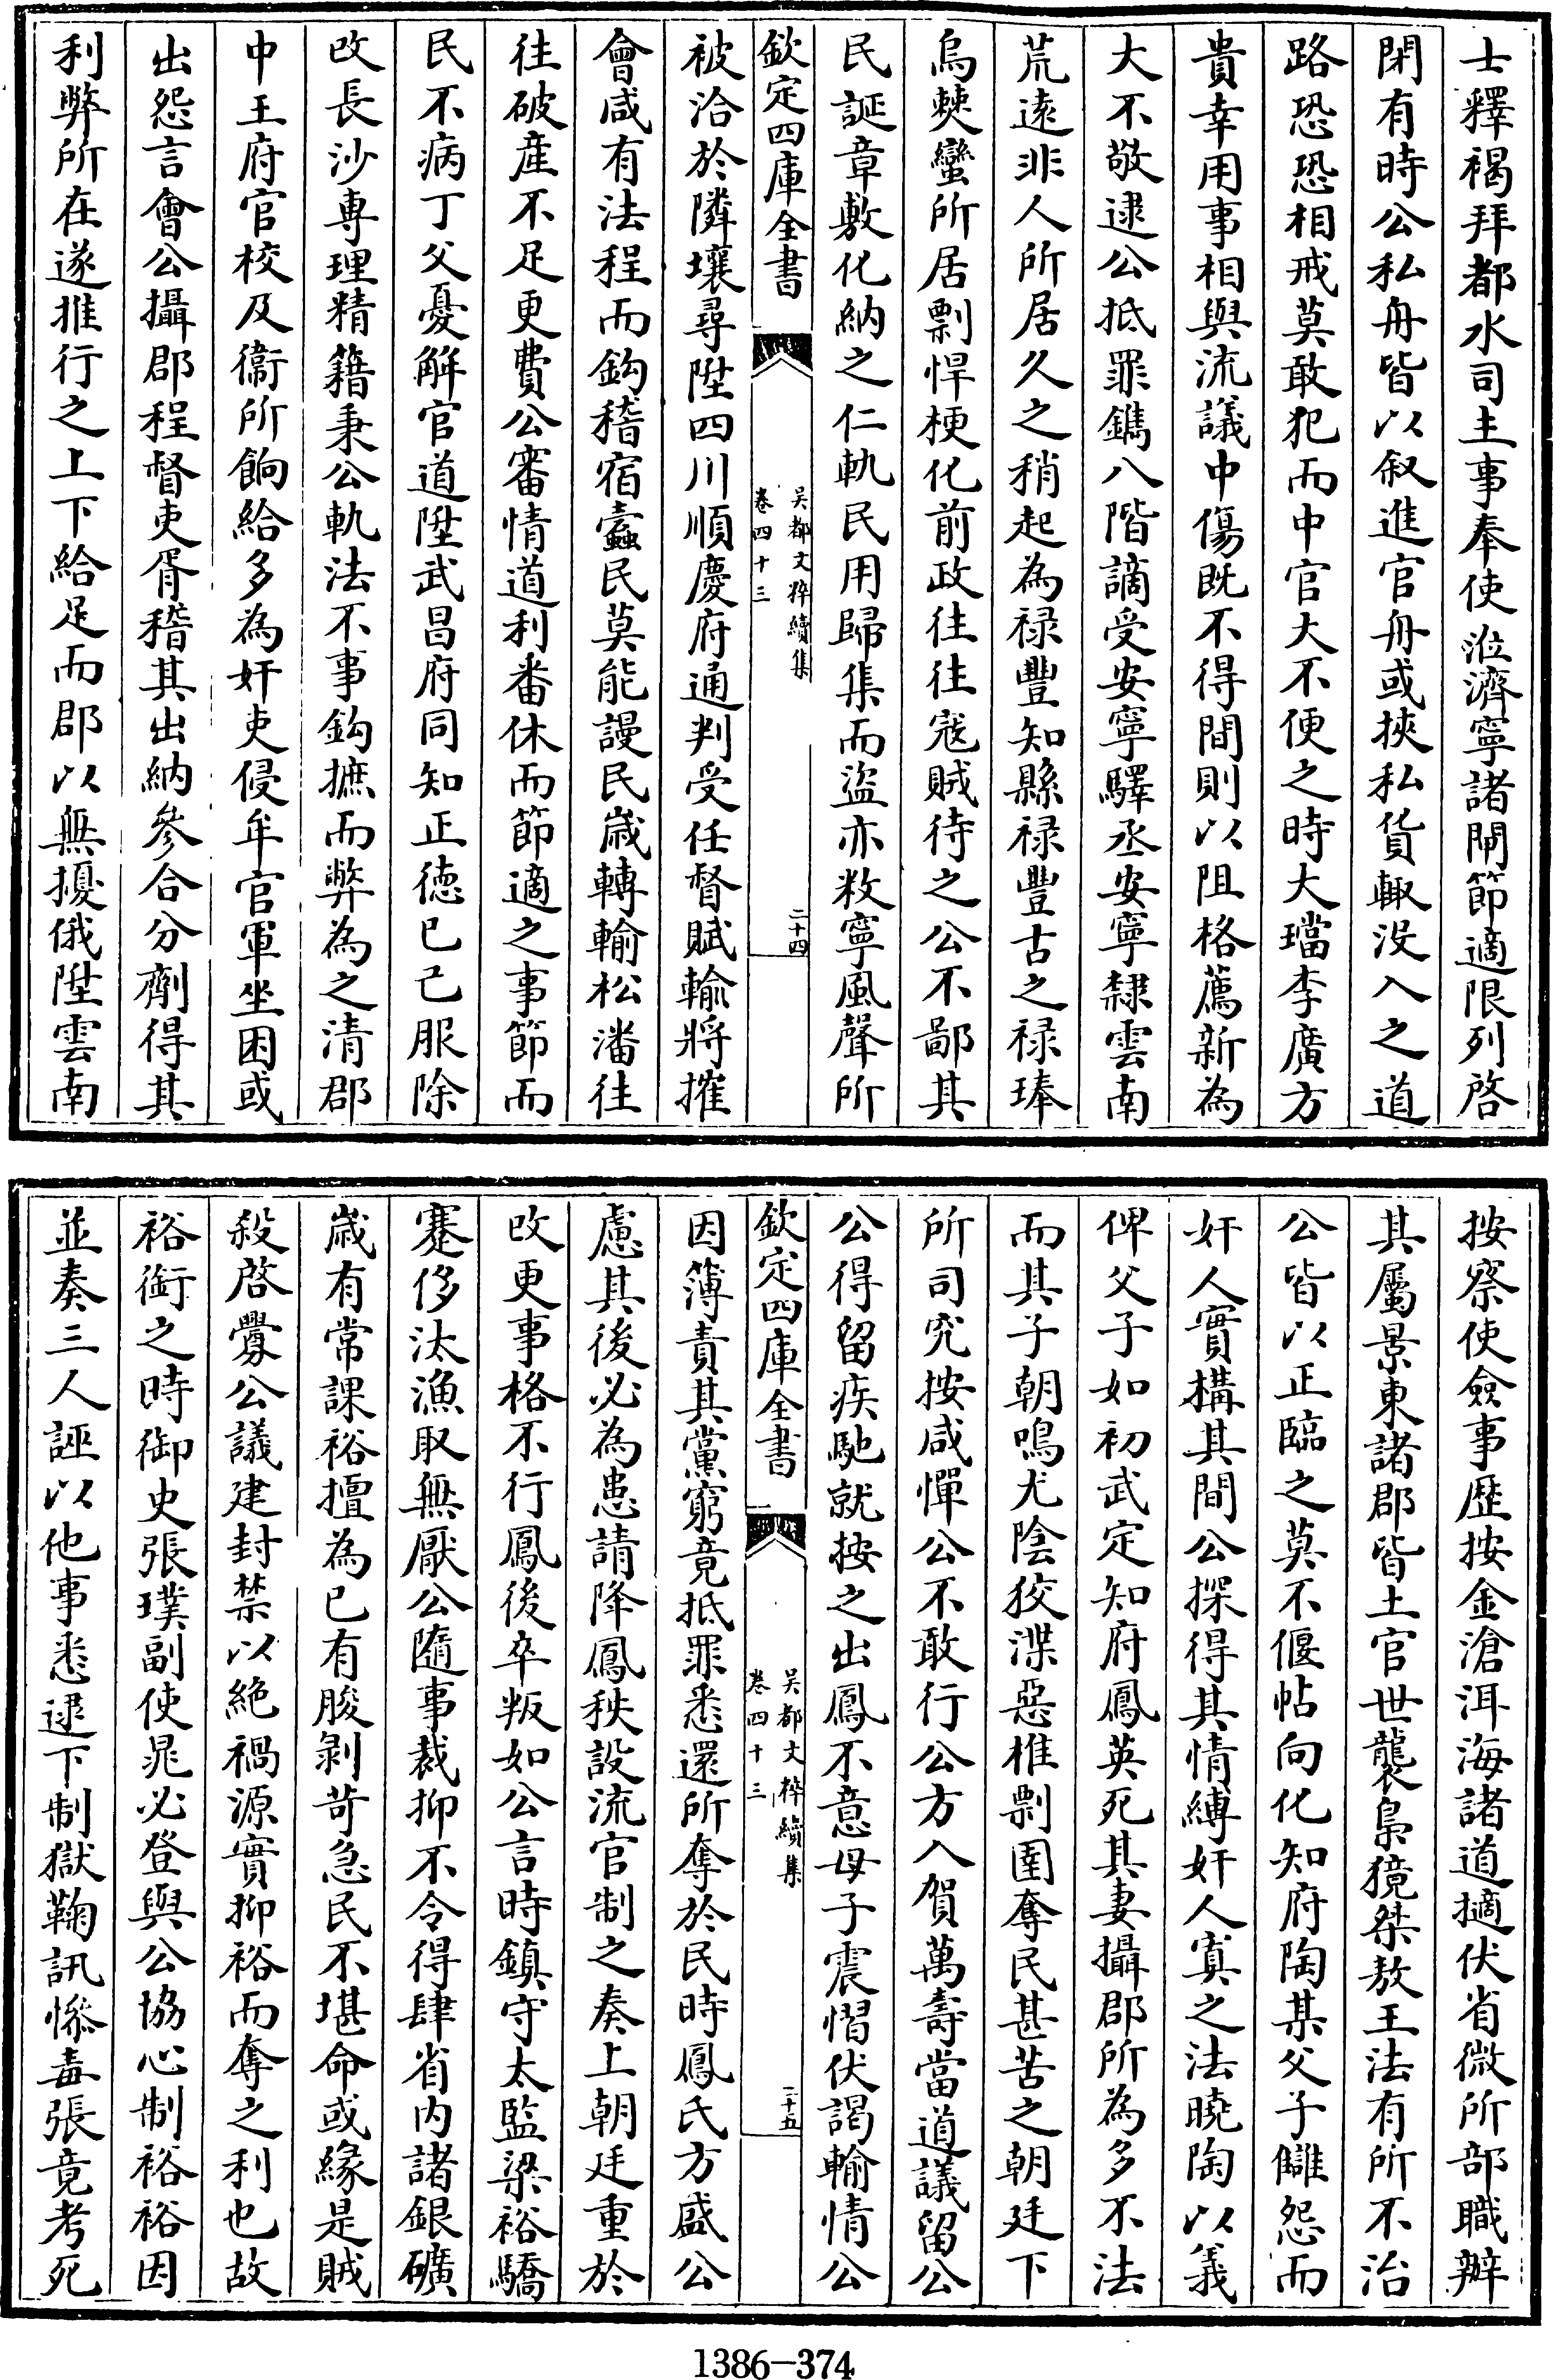 士釋褐拜都水司主事奉使涖濟寧諸閘節適限列啓
閉有時公私舟皆以叙進官舟或挾私貨輙没入之道
路恐恐相戒莫敢犯而中官大不便之時大璫李廣方
貴幸用事相與流議中傷既不得間則以阻格薦新為
大不敬逮公抵罪鐫八階謫受安寧驛丞安寧隸雲南
荒逺非人所居久之稍起為禄豐知縣禄豐古之禄琫
烏㸑蠻所居剽悍梗化前政往往寇賊待之公不鄙其
民誕章敷化納之仁軌民用歸集而盜亦敉寧風聲所
欽定四庫全書
吳都文粹續集
卷四十三
二十四
被洽於隣壤尋陞四川順慶府通判受任督賦輸將摧
會咸有法程而鈎稽宿蠧民莫能謾民嵗轉輸松潘往
往破産不足更費公審情道利番休而節適之事節而
民不病丁父憂解官道陞武昌府同知正徳已己服除
改長沙專理精籍秉公軌法不事鈎摭而弊為之清郡
中王府官校及衞所餉給多為奸吏侵牟官軍坐困或
出怨言會公攝郡程督吏胥稽其出納參合分劑得其
利弊所在遂推行之上下給足而郡以無擾俄陞雲南
按察使僉事歴按金滄洱海諸道擿伏省微所部職辦
其屬景東諸郡皆土官世襲梟獍桀敖王法有所不治
公皆以正臨之莫不偃帖向化知府陶某父子讎怨而
奸人實構其間公探得其情縳奸人寘之法曉陶以義
俾父子如初武定知府鳳英死其妻攝郡所為多不法
而其子朝鳴尤陰狡渫惡椎剽圉奪民甚苦之朝廷下
所司究按咸憚公不敢行公方入賀萬壽當道議留公
公得留疾馳就按之出鳳不意母子震慴伏謁輸情公
欽定四庫全書
吳都文粹續集
卷四十三
二十五
因薄責其黨窮竟抵罪悉還所奪於民時鳳氏方盛公
慮其後必為患請降鳳秩設流官制之奏上朝廷重於
改更事格不行鳳後卒叛如公言時鎮守太監梁裕驕
蹇侈汰漁取無厭公隨事裁抑不令得肆省内諸銀礦
嵗有常課裕擅為已有朘剝苛急民不堪命或緣是賊
殺啓釁公議建封禁以絶禍源實抑裕而奪之利也故
裕銜之時御史張璞副使晁必登與公協心制裕裕因
並奏三人誣以他事悉逮下制獄鞠訊慘毒張竟考死
1386-374